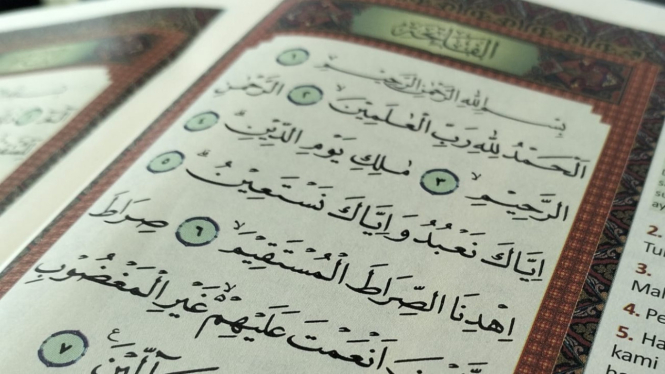 الفاتحة
بِسْمِ اللّٰهِ الرَّحْمٰنِ الرَّحِيْمِ ١
اَلْحَمْدُ لِلّٰهِ رَبِّ الْعٰلَمِيْنَۙ ٢ الرَّحْمٰنِ
الرَّحِيْمِۙ ٣ مٰلِكِ يَوْمِ الدِّيْنِۗ ٤
اِيَّاكَ نَعْبُدُ وَاِيَّاكَ نَسْتَعِيْنُۗ ٥
اِهْدِنَا الصِّرَاطَ الْمُسْتَقِيْمَۙ ٦ صِرَاطَ
اَنْعَمْتَ عَلَيْهِمْۙ غَيْرِ الْمَغْضُوْبِ
٧
2.
3.
4.
5.
kami